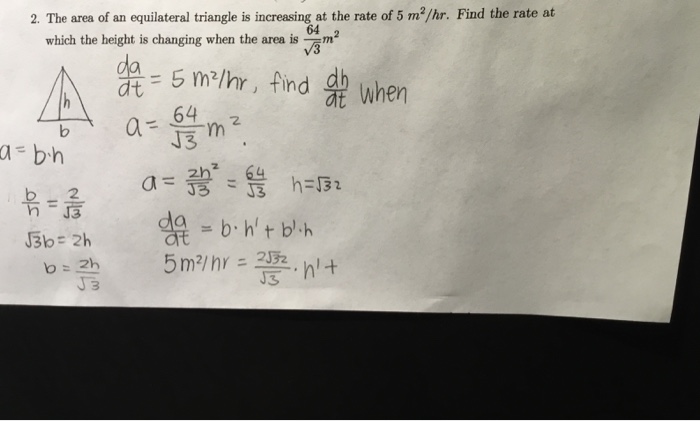 2. The area of an equilateral triangle is increasing at the rate of 5 m²/hr. Find the rate at
which the height is changing when the area is 64/√3 m²
da/dt = 5 m²/hr, find dh/dt when
h
b
a = 64/√3 m².
a = b·h
a = 2h²/√3 = 64/√3 h=√32
b/h = 2/√3
√3b = 2h
b = 2h/√3
da/dt = b·h' + b'·h
5 m²/hr = 2√32/√3 · h' +